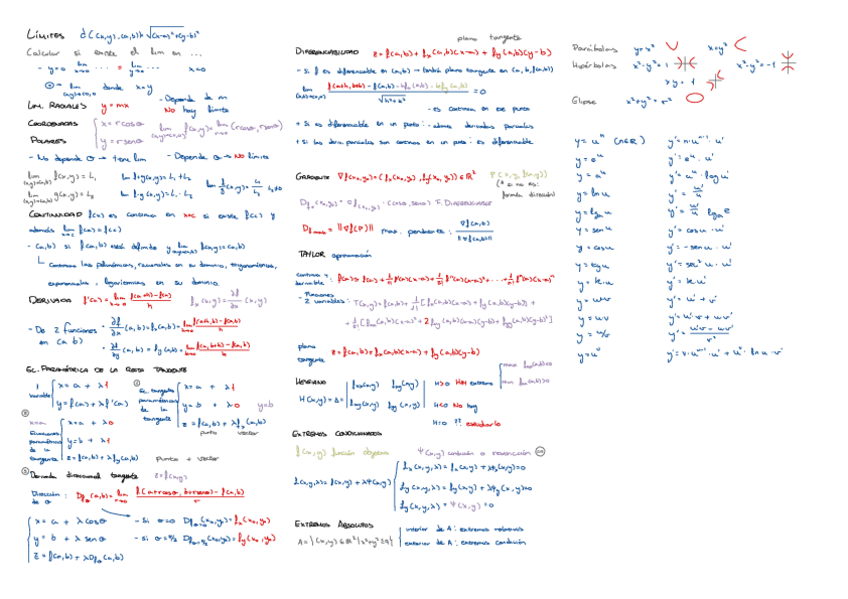 LÍMITES d((x,y),(a,b))= √(x-a)²+(y-b)²
Calcular si existe el lim en ...
- y=0 lim x→0 ... = lim y→0 ... x=0
lim (x,y)→(0,0) donde x=y
LIM. RADIALES y=mx - Depende de m
NO hay límite
COORDENADAS
POLARES
x=rcosθ
y=rsenθ
lim (x,y)→(0,0) f(x,y)= lim r→0 (rcosθ, rsenθ)
- No depende θ → tiene lim - Depende θ → NO límite
lim (x,y)→(a,b) f(x,y)=L₁ lim f+g(x,y)=L₁+L₂
lim (x,y)→(a,b) g(x,y)=L₂ lim f·g(x,y)=L₁·L₂
lim f/g(x,y)= L₁/L₂ L₂≠0
CONTINUIDAD f(x) es continua en x=c si existe f(c) y
además lim x→c f(x)=f(c)
- (a,b) si f(a,b) está definida y lim (x,y)→(a,b) f(x,y)=(a,b)
Continuas las polinómicas, racionales en su dominio, trigonométricas,
exponenciales, logarítmicas en su dominio.
DERIVADA f'(a)= lim h→0 f(a+h)-f(a)/h
- De 2 funciones en (a,b)
∂f/∂x (a,b) = fx(a,b)= lim h→0 f(a+h,b)-f(a,b)/h
∂f/∂y (a,b) = fy(a,b)= lim h→0 f(a,b+h)-f(a,b)/h
EC. PARAMÉTRICA DE LA RECTA TANGENTE
1 variable
x = a + λ1
y = f(a)+λf'(a)
Ec. tangente paramétricas de la tangente
x = a + λ1
y = b + λ0 y=b
z = f(a,b)+λfx(a,b)
punto vector
x=a
Ecuaciones paramétricas de la tangente
x = a + λ0
y = b + λ1
z = f(a,b)+λfy(a,b)
punto + vector
Derivada direccional tangente z=f(x,y)
Dirección de θ : Dfθ(a,b)= lim r→0 f(a+rcosθ, b+rsenθ)-f(a,b)/r
x = a + λcosθ
y = b + λ senθ
z = f(a,b) + λDfθ(a,b)
- Si θ=0 Dfθ=0(x₀,y₀)=fx(x₀,y₀)
- Si θ=π/2 Dfθ=π/2(x₀,y₀)=fy(x₀,y₀)
plano tangente
DIFERENCIABILIDAD z=f(a,b)+fx(a,b)(x-a)+fy(a,b)(y-b)
- Si f es diferenciable en (a,b) → tendrá plano tangente en (a,b,f(a,b))
lim (h,k)→(0,0) f(a+h,b+k)-f(a,b)-hfx(a,b)-kfy(a,b)/√h²+k² =0
- es continua en ese punto
+ Si es diferenciable en un punto: - admite derivadas parciales
+ Si las deri. parciales son continuas en un punto: es diferenciable
GRADIENTE ∇f(x₀,y₀)=(fx(x₀,y₀), fy(x₀,y₀)) ∈ℝ²
Dfθ(x₀,y₀) = ∇f(x₀,y₀)·(cosθ,senθ) Si DIFERENCIABLE
Dfmax = ‖∇f(P)‖ max. pendiente: ∇f(a,b)/‖∇f(a,b)‖
TAYLOR aproximación
- Funciones 2 variables: T(x,y)=f(a,b)+1/1![fx(a,b)(x-a)+fy(a,b)(y-b)]+
+1/2![fxx(a,b)(x-a)²+2fxy(a,b)(x-a)(y-b)+fyy(a,b)(y-b)²]
plano tangente z=f(a,b)+fx(a,b)(x-a)+fy(a,b)(y-b)
HESSIANO
H(x,y)=Δ= fxx(x,y) fxy(x,y)
fxy(x,y) fyy(x,y)
H>0 HAY extremo
H<0 NO hay
H=0 ?? estudiarlo
EXTREMOS CONDICIONADOS
f(x,y) función objetivo Ψ(x,y) condición o restricción
L(x,y,λ)=f(x,y)+λΨ(x,y)
Lx(x,y,λ)=fx(x,y)+λΨx(x,y)=0
Ly(x,y,λ)=fy(x,y)+λΨy(x,y)=0
Lλ(x,y,λ)=Ψ(x,y)=0
EXTREMOS ABSOLUTOS
A={(x,y)∈ℝ²/x²+y²≤9}
interior de A: extremos relativos
exterior de A: extremos condición
Parábolas y=x² x=y²
Hipérbolas x²-y²=1 x²-y²=-1
xy=1
Elipse x²+y²=r²
y = uⁿ (n∈ℝ) y'= n·uⁿ⁻¹·u'
y = eᵘ y'= eᵘ·u'
y = aᵘ y'= aᵘ·log u'
y = ln u y'= u'/u
y = lgₐ u y'= u'/u lgₐ e
y = sen u y'= cosu·u'
y = cosu y'= -senu·u'
y = tgu y'= sec²u·u'
y = k·u y'= k·u'
y = u+v y'= u'+v'
y = uv y'= u'v+uv'
y = u/v y'= u'v-uv'/v²
y = uᵛ y'= v·uᵛ⁻¹·u'+uᵛ·lnu·v'